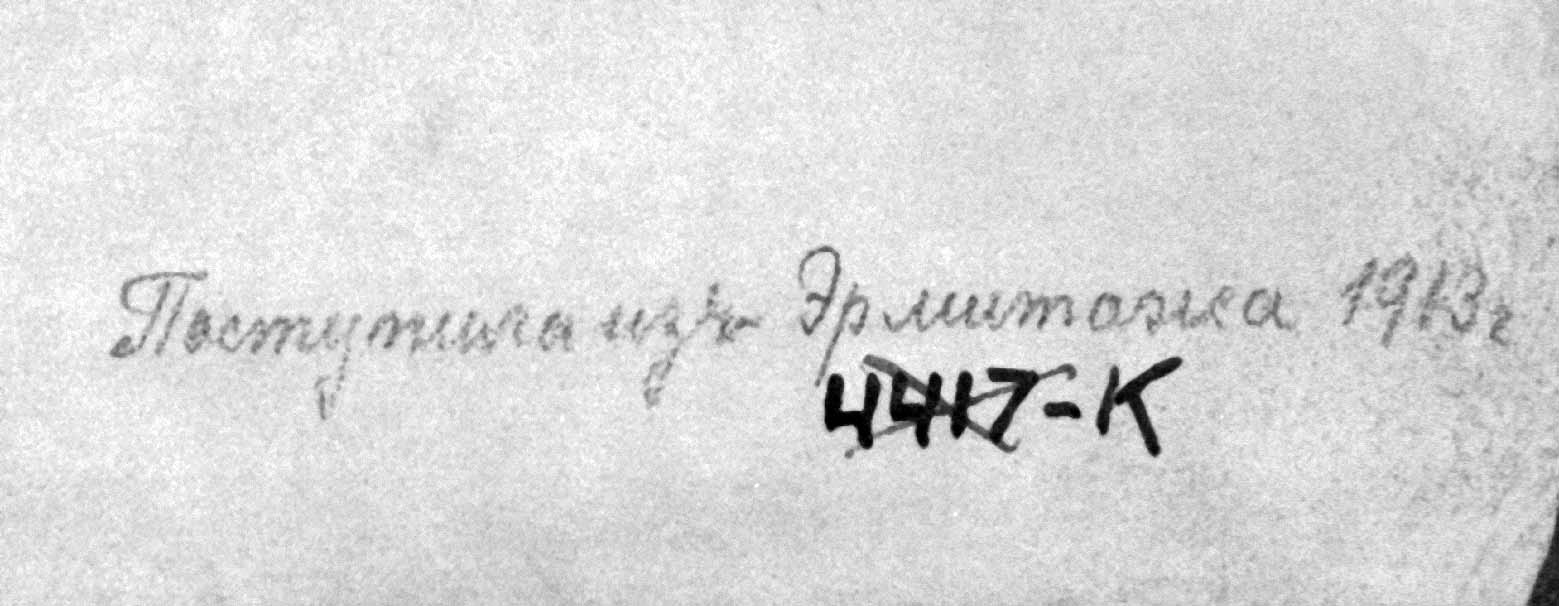 Поступила изъ Эрмитажа 1913 г
4417-К